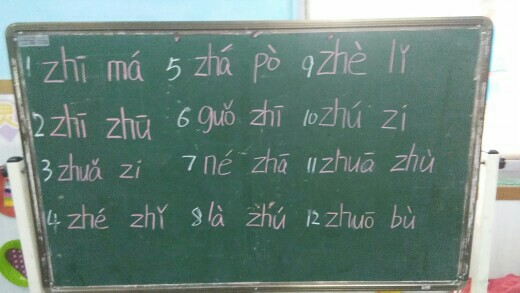 1 zhī má 5 zhá pò 9 zhè lǐ
2 zhī zhū 6 guǒ zhī 10 zhú zi
3 zhuǎ zi 7 né zhā 11 zhuā zhù
4 zhé zhǐ 8 là zhú 12 zhuō bù